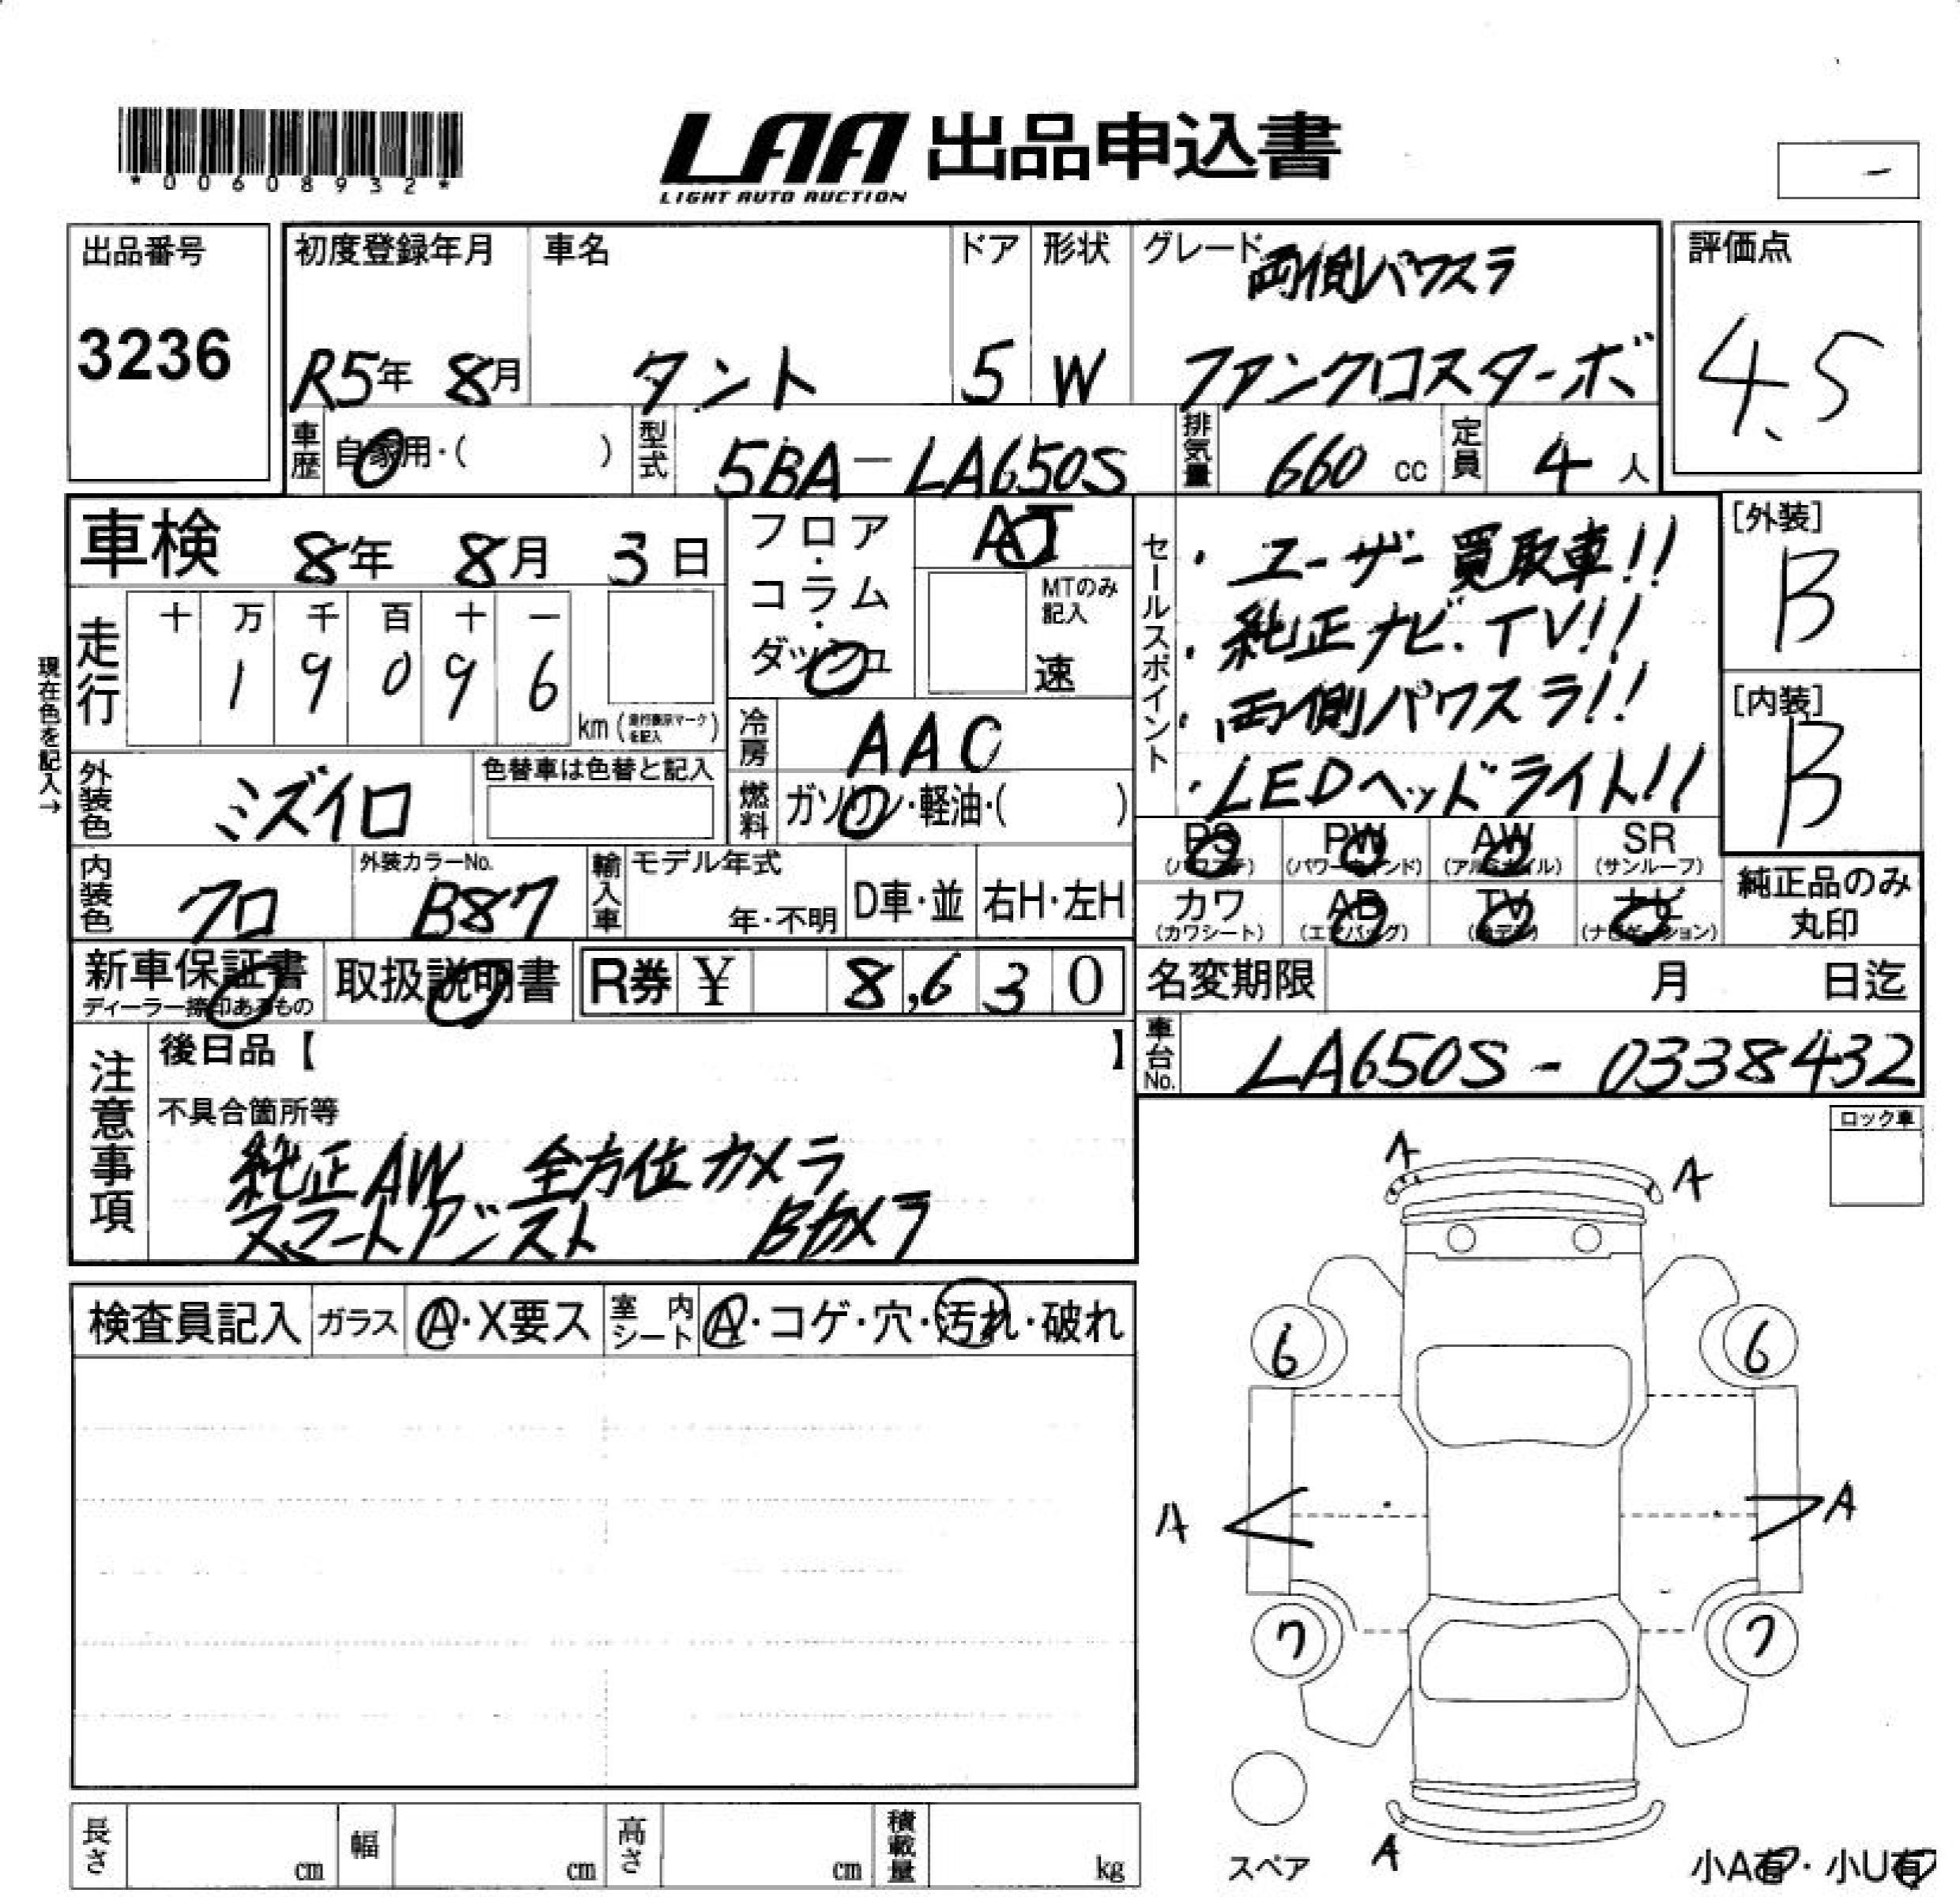 *00608932*
LAA 出品申込書
LIGHT AUTO AUCTION
-
出品番号
3236
初度登録年月
R5年 8月
車名
タント
ドア
5
形状
W
グレード
両側パワスラ
ファンクロスターボ
評価点
4.5
車歴
自家用・( )
型式
5BA-LA650S
排気量
660 cc
定員
4 人
車検 8年 8月 3日
フロア・コラム・ダッシュ
AT
MTのみ記入
速
現在色を記入→
走行
十 万 千 百 十 一
1 9 0 9 6
km (走行表示マークを記入)
冷房
AAC
外装色
ミズイロ
色替車は色替と記入
燃料
ガソリン・軽油・( )
セールスポイント
・ユーザー買取車!!
・純正ナビ.TV!!
・両側パワスラ!!
・LEDヘッドライト!!
[外装]
B
[内装]
B
PS PW AW SR
(パワステ) (パワーウインド) (アルミホイル) (サンルーフ)
カワ AB TV ナビ
(カワシート) (エアバッグ) (ナビゲーション)
純正品のみ
丸印
内装色
クロ
外装カラーNo.
B87
輸入車
モデル年式
年・不明
D車・並
右H・左H
新車保証書
ディーラー捺印あるもの
取扱説明書
R券 ¥ 8,630
名変期限 月 日迄
車台No.
LA650S-0338432
注意事項
後日品【 】
不具合箇所等
純正AW 全方位カメラ
スマートアシスト Bカメラ
ロック車
検査員記入
ガラス
A・X要ス
室内シート
A・コゲ・穴・汚れ・破れ
A A
6 6
A A
7 7
スペア
A
小A有・小U有
長さ cm
幅 cm
高さ cm
積載量 kg